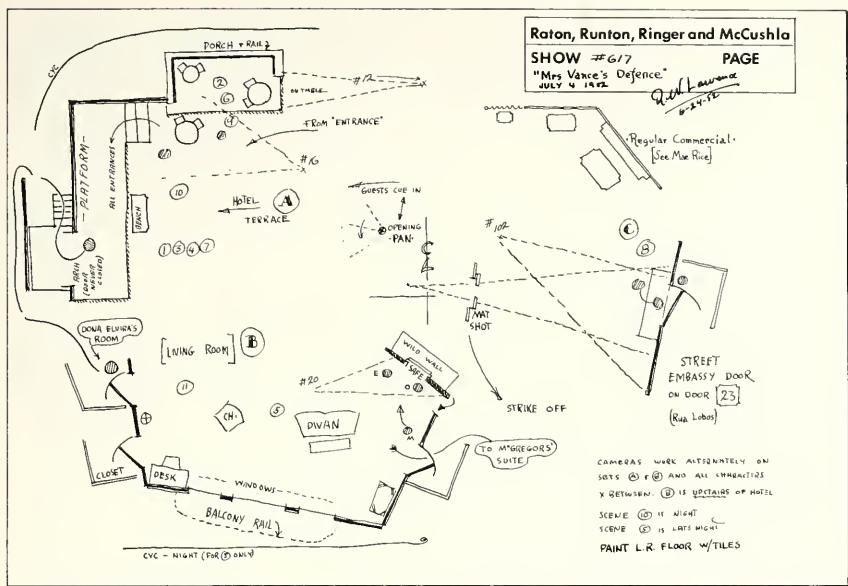 Raton, Runton, Ringer and McCushla
SHOW #617 PAGE
"Mrs Vance's Defence"
JULY 4 1952
6-24-52
CYC
PORCH + RAIL
2
6
4
ON TABLE
#12
FROM "ENTRANCE"
#16
- PLATFORM -
ALL ENTRANCES
BENCH
10
HOTEL A
TERRACE
1 3 4 7
ARCH
(DOOR
NEVER
CLOSED)
GUESTS CUE IN
OPENING
PAN
C
L
MAT
SHOT
STRIKE OFF
Regular Commercial
[See Mae Rice]
#102
C
8
STREET
EMBASSY DOOR
ON DOOR 23
(Rua Lobos)
DONA ELVIRA'S
ROOM
[LIVING ROOM] B
11
WILD WALL
SAFE
E
O
#20
CH.
5
DIVAN
M
TO McGREGORS'
SUITE
CLOSET
DESK
WINDOWS
BALCONY RAIL
CYC - NIGHT (FOR 5 ONLY)
CAMERAS WORK ALTERNATELY ON
SETS A & B AND ALL CHARACTERS
X BETWEEN. B IS UPSTAIRS OF HOTEL
SCENE 10 IS NIGHT
SCENE 5 IS LATE NIGHT
PAINT L.R. FLOOR W/TILES